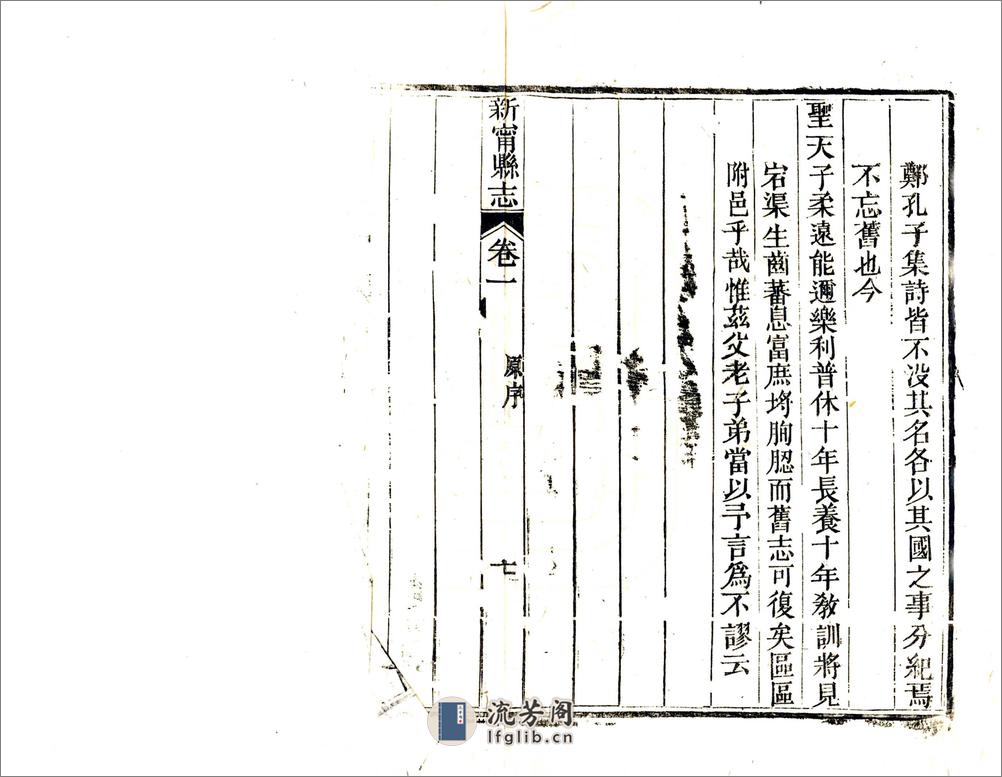 鄭孔子集詩皆不没其名各以其國之事分紀焉
不忘舊也今
聖天子柔遠能邇樂利普休十年長養十年教訓將見
宕渠生齒蕃息富庶埒朐䏰而舊志可復矣區區
附邑乎哉惟茲父老子弟當以予言為不謬云
新甯縣志
卷一
原序
七
流芳阁
lfglib.cn